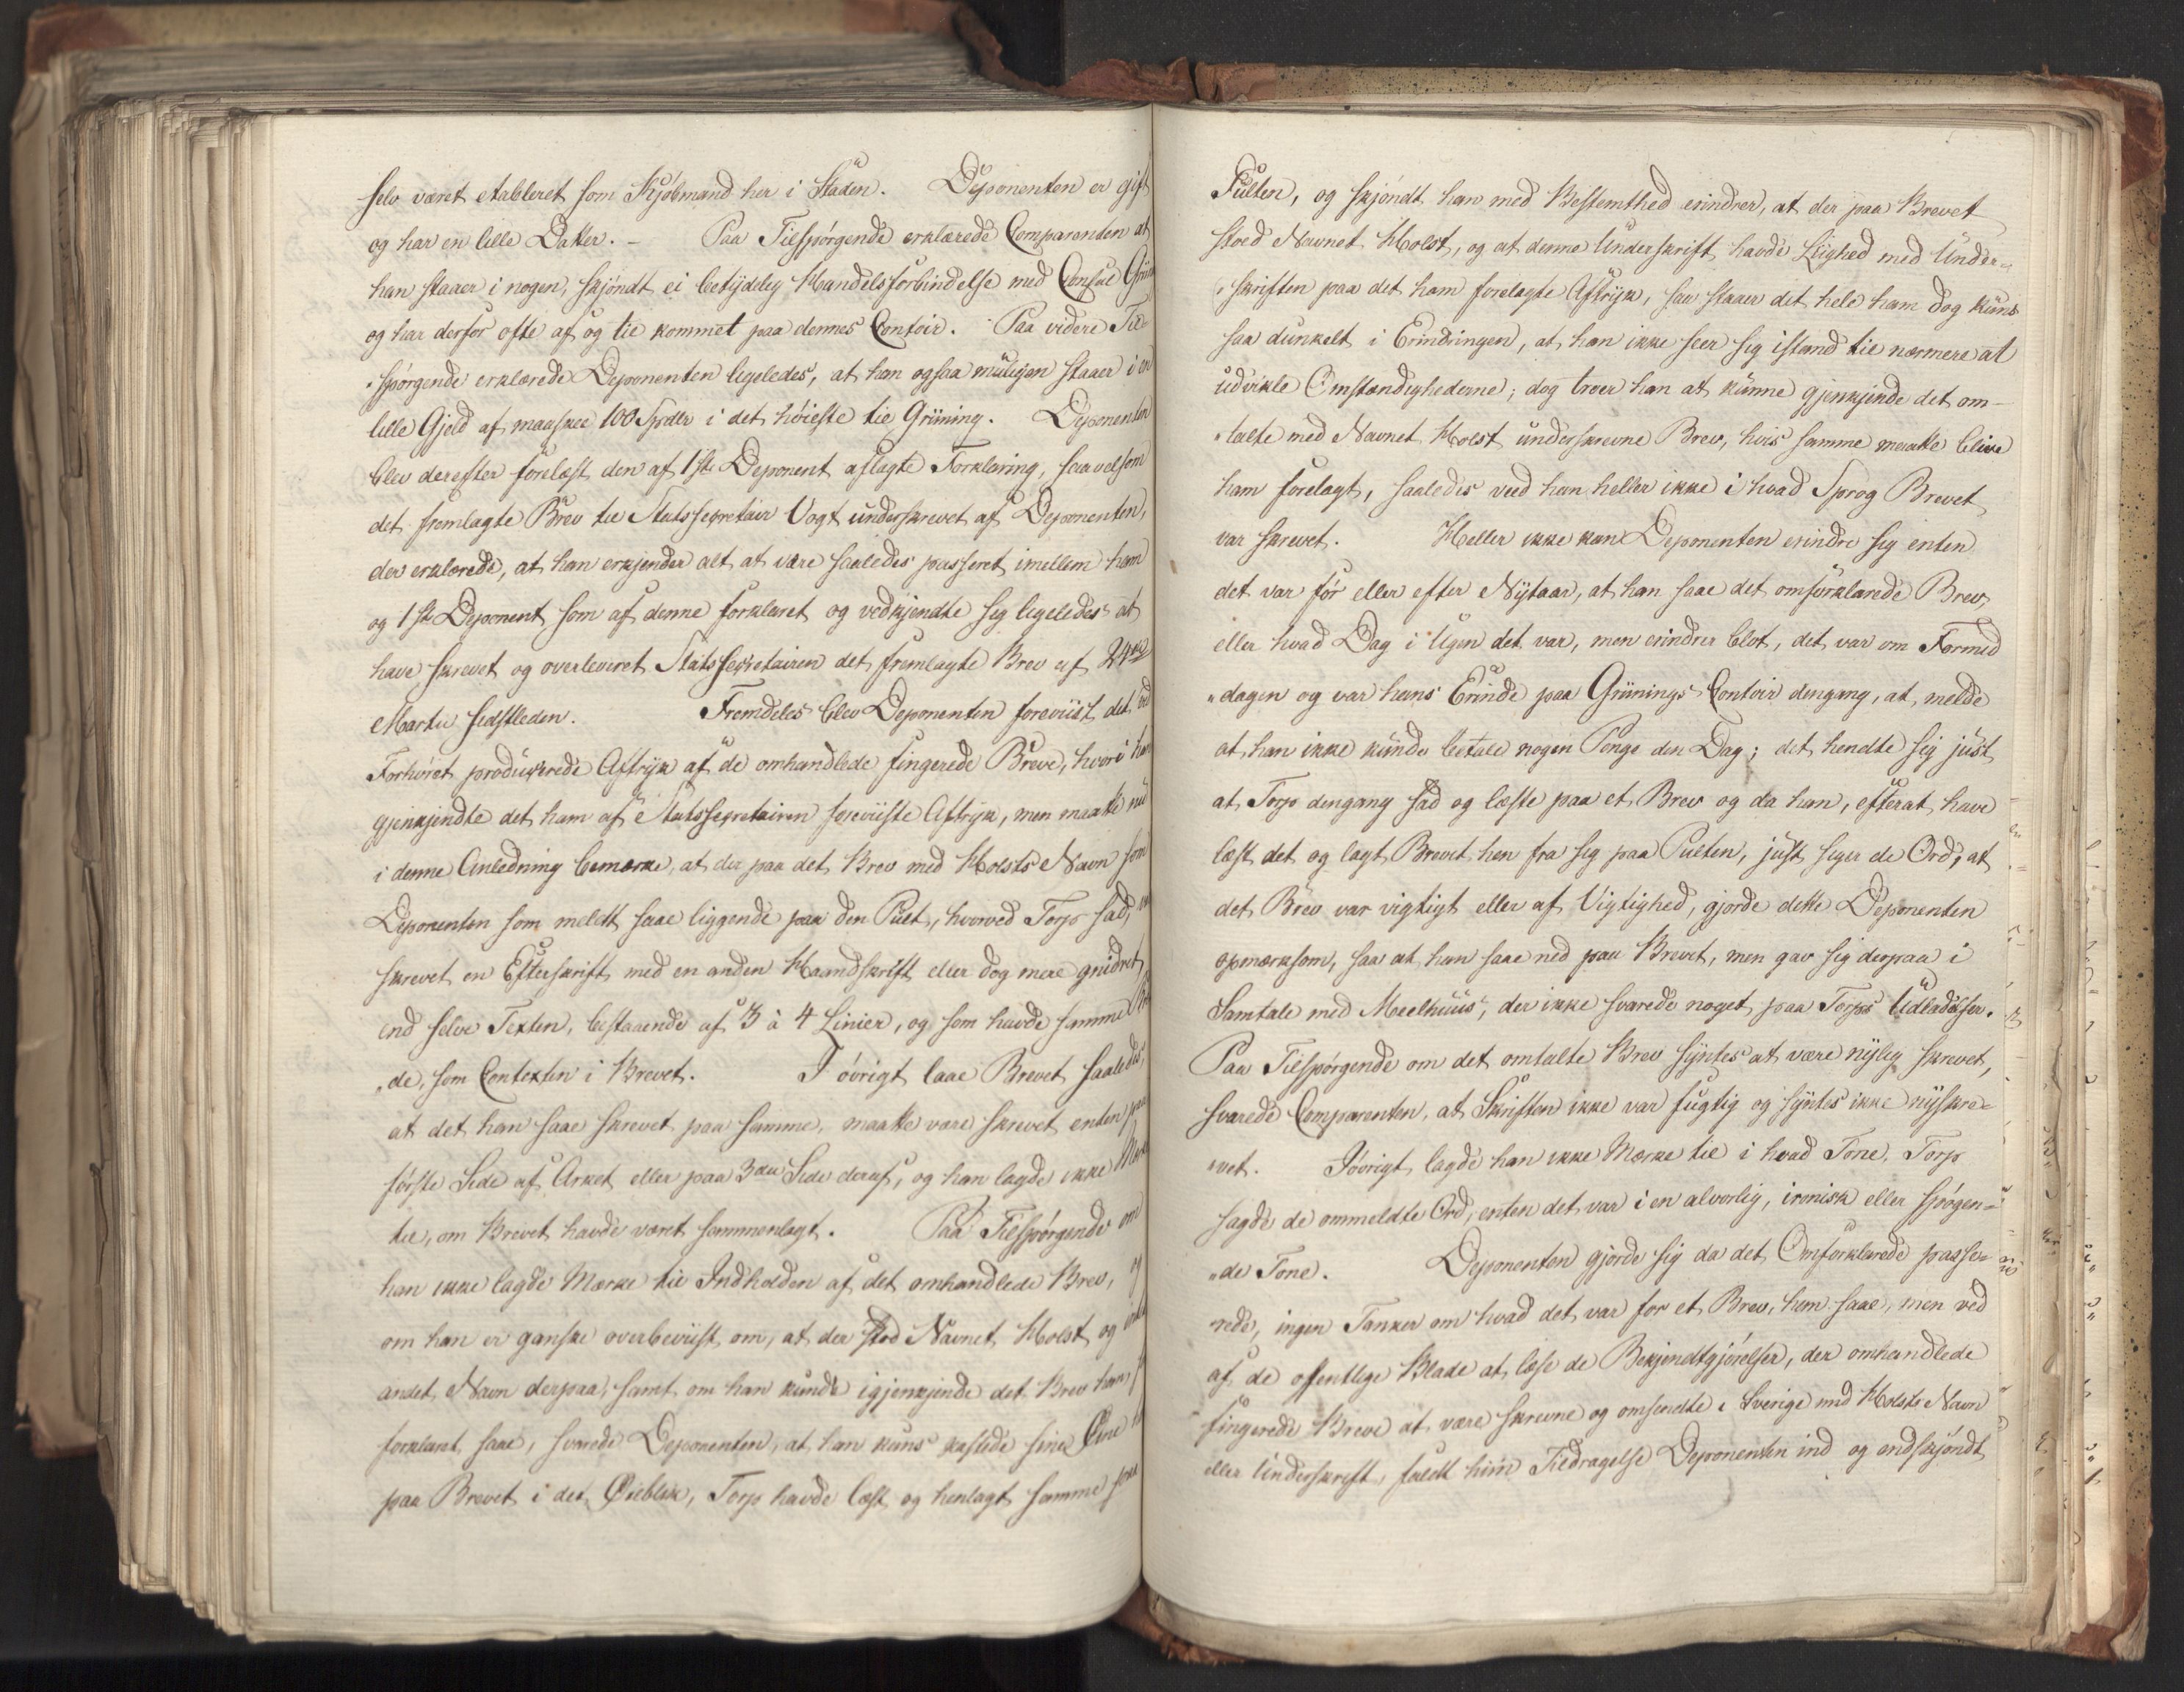 selv været etableret som Kjøbmand her i Staden. Deponenten er gift
og har en lille Datter. – Paa Tilspørgende erklærede Comparenten at
han staaer i nogen, skjøndt ei betydelig Handelsforbindelse med Consul Grün
og har derfor ofte af og til kommet paa dennes Contoir. Paa videre Til-
„spørgende erklærede Deponenten ligeledes, at han ogsaa muligen staaer i en
lille Gjeld af maaskee 100 Spdlr i det høieste til Grüning. Deponenten
blev derefter forelæst den af 1ste Deponent aflagte Forklaring, saavelsom
det fremlagte Brev til Statssecretair Vogt underskrevet af Deponenten,
der erklærede, at han erkjender alt at være saaledes passeret imellem ham
og 1ste Deponent som af denne forklaret og vedkjendte sig ligeledes at
have skrevet og overleveret Statssecretairen det fremlagte Brev af 24de
Martii sidstleden. Fremdeles blev Deponenten foreviist det ved
Forhøret producerede Aftryk af de omhandlede fingerede Breve, hvori han
gjenkjendte det ham af Statssecretairen foreviiste Aftryk, men maatte nu
i denne Anledning bemærke, at der paa det Brev med Holsts Navn som
Deponenten som meldt saae liggende paa den Pult, hvorved Torp sad, var
skrevet en Efterskrift med en anden Haandskrift eller dog mere gnidret
end selve Texten, bestaaende af 3 à 4 Linier, og som havde samme
„de, som Contexten i Brevet. I øvrigt laae Brevet saaledes,
at det han saae skrevet paa samme, maatte være skrevet enten paa
første Side af Arket eller paa 3die Side deraf, og han lagde ikke Mærke
til, om Brevet havde været sammenlagt. Paa Tilspørgende om
han ikke lagde Mærke til Indholden af det omhandlede Brev, og
om han er ganske overbeviist om, at der stod Navnet Holst og intet
andet Navn derpaa, samt om han kunde igjenkjende det Brev han,
forklaret saae, svarede Deponenten, at han kuns kastede sine Øine
paa Brevet i det Øieblik, Torp havde læst og henlagt samme paa
Pulten, og skjøndt han med Bestemthed erindrer, at der paa Brevet
stoed Navnet Holst, og at denne Underskrift havde Liighed med Under-
„skriften paa det ham forelagte Aftryk, saa staaer det hele ham dog kuns
saa dunkelt i Erindringen, at han ikke seer sig istand til nærmere at
udvikle Omstændighederne; dog troer han at kunne gjenkjende det om-
„talte med Navnet Holst underskrevne Brev, hvis samme maatte blive
ham forelagt, saaledes veed han heller ikke i hvad Sprog Brevet
var skrevet. Heller ikke kan Deponenten erindre sig enten
det var før eller efter Nytaar, at han saae det omforklarede Brev,
eller hvad Dag i Ugen det var, men erindrer blot, det var om Formid
„dagen og var hans Erinde paa Grünings Contoir dengang, at melde
at han ikke kunde betale nogen Penge den Dag; det hendte sig just
at Torp dengang sad og læste paa et Brev og da han, efterat have
læst det og lagt Brevet hen fra sig paa Pulten, just siger de Ord, at
det Brev var vigtigt eller af Vigtighed, gjorde dette Deponenten
opmærksom, saa at han saae ned paa Brevet, men gav sig derpaa i
Samtale med Meelhuus, der ikke svarede noget paa Torps Udladelser.
Paa Tilspørgende om det omtalte Brev syntes at være nylig skrevet,
svarede Comparenten, at Skriften ikke var fugtig og syntes ikke nyskre-
„vet. Iøvrigt lagde han ikke Mærke til i hvad Tone, Torp
sagde de ommeldte Ord, enten det var i en alvorlig, ironisk eller spørgen-
„de Tone. Deponenten gjorde sig da det Omforklarede passe-
„rede, ingen Tanker om hvad det var for et Brev, han saae, men ved
af de offentlige Blade at læse de Bekjendtgjørelser, der omhandlede
fingerede Breve at være skrevne og omsendte i Sverige med Holsts Navn
eller Underskrift, faldt hiin Tildragelse Deponenten ind og endskjøndt